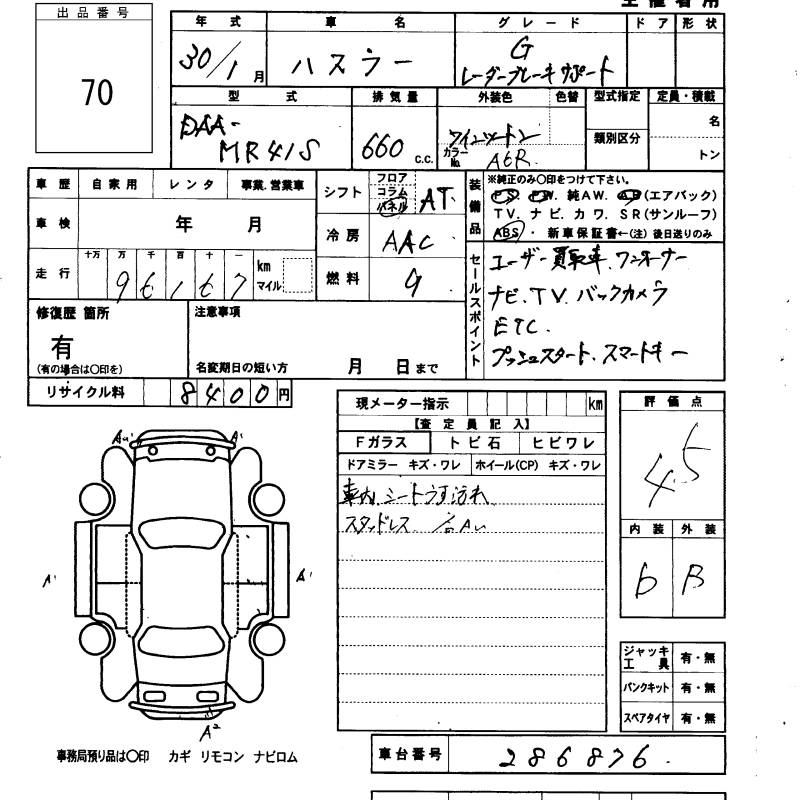 出品番号
70
年式 車名 グレード ドア 形状
30/1月 ハスラー G
レーダーブレーキサポート
型式 排気量 外装色 色替 型式指定 定員・積載
DAA-
MR41S 660 c.c. カラーNo. 類別区分 名
トン
車歴 自家用 レンタ 事業.営業車
車検 年 月
走行 十万 万 千 百 十 一 km マイル
9 6 1 6 7
シフト フロア コラム パネル AT.
冷房 AAC
燃料 G.
装備品 ※純正のみ〇印をつけて下さい。
PS. PW. 純AW. AB(エアバック)
TV. ナビ. カワ. SR(サンルーフ)
ABS. 新車保証書←(注) 後日送りのみ
セールスポイント
ユーザー買取車.ワンオーナー
ナビ.TV.バックカメラ
ETC.
プッシュスタート.スマートキー
修復歴 箇所
有
(有の場合は〇印を)
注意事項
名変期日の短い方 月 日まで
リサイクル料 8400円
現メーター指示 km
【査定員記入】
Fガラス トビ石 ヒビワレ
ドアミラー キズ・ワレ ホイール(CP) キズ・ワレ
車内.シートうす汚れ
スタッドレス
評価点
4.5
内装 外装
b B
A' A' A' A2
ジャッキ工具 有・無
パンクキット 有・無
スペアタイヤ 有・無
事務局預り品は〇印 カギ リモコン ナビロム
車台番号 286876.